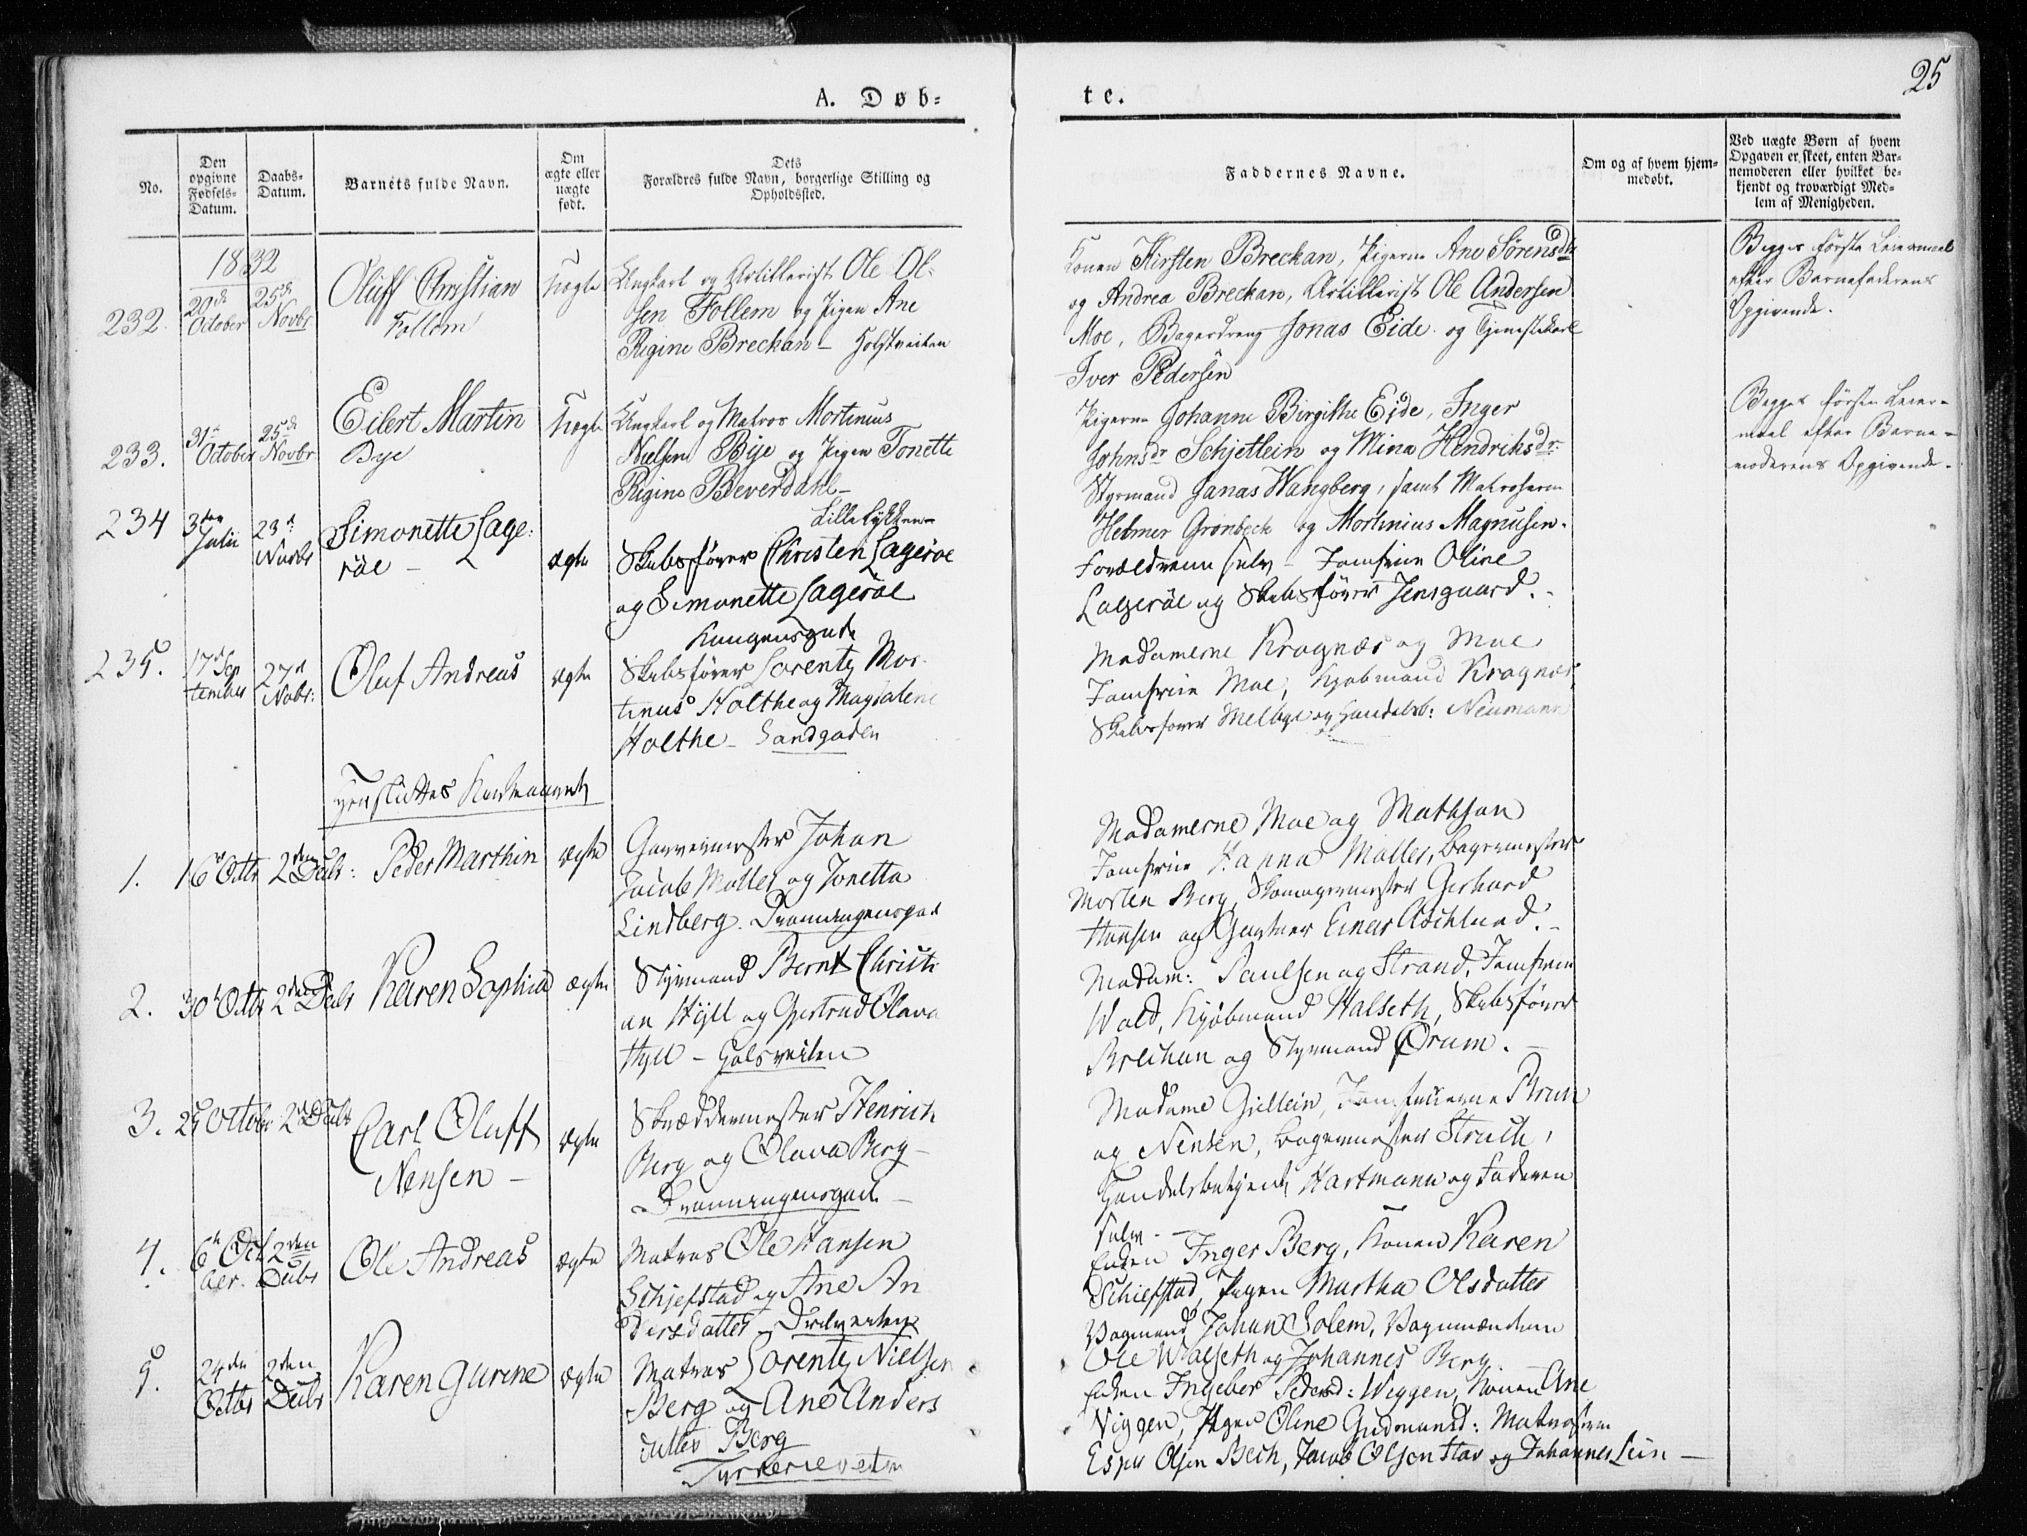 25
A. Døb-
te.
No.
Den opgivne Fødsels-Datum.
Daabs-Datum.
Barnets fulde Navn.
Om ægte eller uægte født.
Dets Forældres fulde Navn, borgerlige Stilling og Opholdssted.
Faddernes Navne.
Om og af hvem hjem-medøbt.
Ved uægte Børn af hvem
Opgaven er skeet, enten Bar-
nemoderen eller hvilket be-
kjendt og troværdigt Med-
lem af Menigheden.
1832
232. 20de October 25de Novbr
Oluff Christian
Follem
Uægte
Ungkarl og Artillerist Ole Ol-
sen Follem og Pigen Ane
Regine Breckan -
Konen Kirsten Breckan, Pigerne Ane Sørensdtr
og Andrea Breckan, Artillerist Ole Andersen
Moe, Bagerdreng Jonas Eide og Tjenestekarl
Iver Pedersen
Begges første Leiermaal
efter Barnefaderens
Opgivende.
233. 31te October 25de Novbr
Eilert Martin
Bye
Uægte
Ungkarl og Matros Mortinius
Nielsen Bye og Pigen Tonette
Regine Beverdahl -
Lillelykken
Pigerne Johanne Birgithe Eide, Inger
Johnsdr Schjetlein og Mina Hendriksdr.
Styrmand Jonas Wangberg, samt Matroserne
Helmer Grønbeck og Mortinius Magnusen.
Begges første Leier-
maal efter Barne-
moderens Opgivende.
234 3die Julii 23d Novbr
Simonette Lage-
röe -
ægte
Skibsfører Christen Lageröe
og Simonette Lageröe
Kongensgade
Forældrene selv - Jomfrue Oline
Lageröe og Skibsfører Jensgaard. -
235. 17d Sep tember 27d Nobr:
Oluf Andreas
ægte
Skibsfører Lorentz Mor-
tinus Holthe og Magdalene
Holthe - Sandgaden
Madamerne Kragnæs og Moe
Jomfrue Moe, Kjøbmand Kragnæs,
Skibsfører Melbye og Handelsb: Neumann
Hensluttes
1. 16d Octbr 2den Decbr:
Peder Marthin
ægte
Garvermester Johan
Jacob Møller og Jonetta
Lindberg. Dronningensgad
Madamerne Moe og Mathson
Jomfrue Hanna Møller, Bagermester
Morten Berg, Skomagermester Gerhard
Hansen og Gartner Einar
2. 30d Octbr 2den Decbr
Karen Sophia
ægte
Styrmand Bernt Christi
an Hyll og Gjertrud Olava
Hyll -
Madam: Paulsen og Strand, Jomfrue
Wold, Kjøbmand Halseth, Skibsfører
Brechan og Styrmand Ørum. -
3. 25 Octobr 2d Decbr
Carl Oluff
Nensen -
ægte
Skræddermester Henrich
Berg og Olava Berg -
Dronningensgad -
Madame Gjellein, Jomfruerne Brun
og Nensen, Bagermester Struch,
Handelsbetjent Hartmann og Faderen
selv. -
4. 6te Octber. 2den Decbr
Ole Andreas
ægte
Matros Ole Hansen
Schjefstad og Ane An
dersdatter
Enken Inger Berg, Konen Karen
Schiefstad, Pigen Martha Olsdatter
Vognmand Johan Solem, Vognmændene
Ole Walseth og Johannes Berg.
5. 24de Octbr 2den Decbr
Karen Gurine
ægte
Matros Lorentz Nielsen
Berg og Ane Anders
datter Berg
Enken Ingebor Pedersd: Wiggen, Konen Ane
Viggen, Pigen Oline Gudmunsd: Matroserne
Esper Olsen Bech, Jacob Olsen Stav og Johannes Lein -